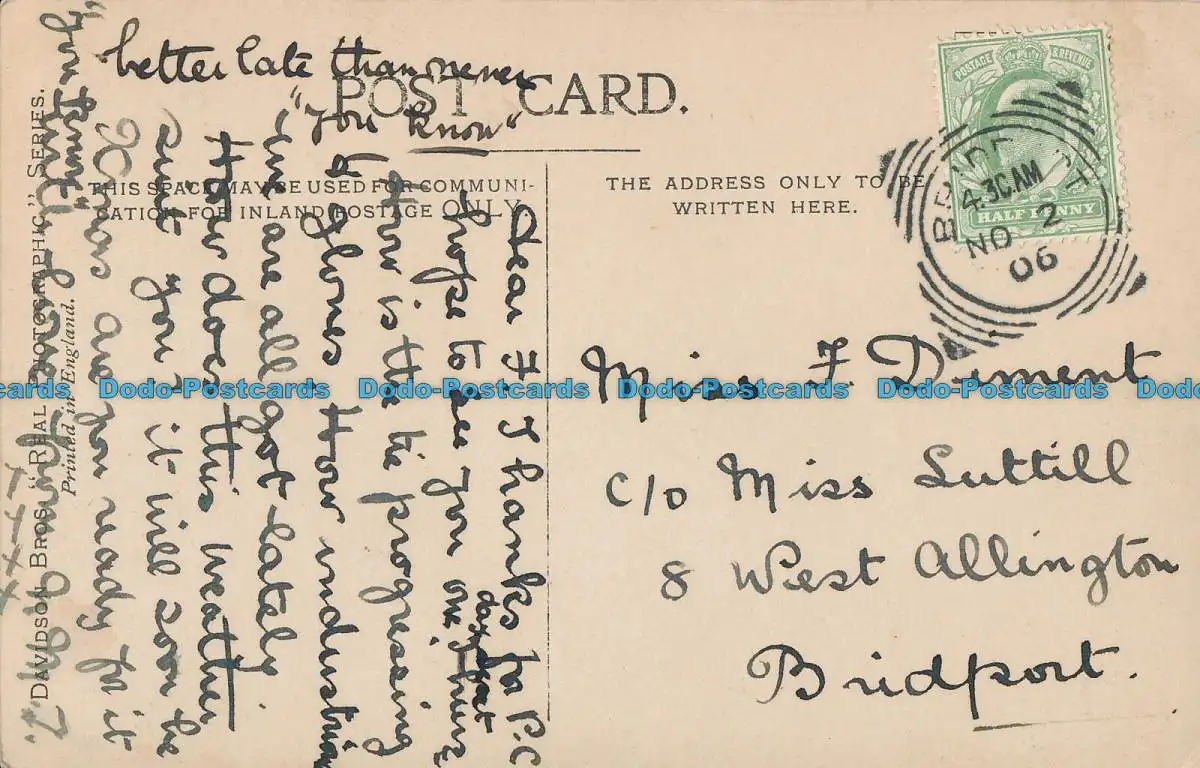 better late than never
"You know"
POST CARD.
THIS SPACE MAY BE USED FOR COMMUNI-
CATION FOR INLAND POSTAGE ONLY.
THE ADDRESS ONLY TO BE
WRITTEN HERE.
POSTAGE & REVENUE
HALF PENNY
4.30AM
NO 2
06
Dear F. Thanks for P.C
hope to see you one
day next
How is the tie progressing
& gloves How industrious
we are all got lately.
How does this weather
suit you, it will soon be
Xmas are you ready for it
Miss F. Diment
c/o Miss Luttill
8 West Allington
Bridport.
"DAVIDSON BROS." "REAL PHOTOGRAPHIC" SERIES.
Printed in England.
Dodo-Postcards Dodo-Postcards Dodo-Postcards Dodo-Postcards Dodo-Postcards